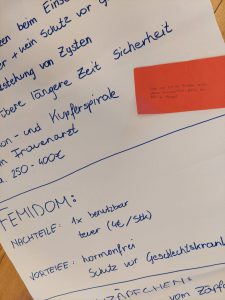 zen beim Eins
er + kein Schutz vor G
tstehung von Zysten
bere längere Zeit Sicherheit
on- und Kupferspirale
m Frauenarzt
a. 250-400€
FEMIDOM:
NACHTEILE: 1x benutzbar
teuer (4€/Stk)
VORTEILE: hormonfrei
Schutz vor Geschlechtskrank
ZÄPFCHEN:
vom Zäpf